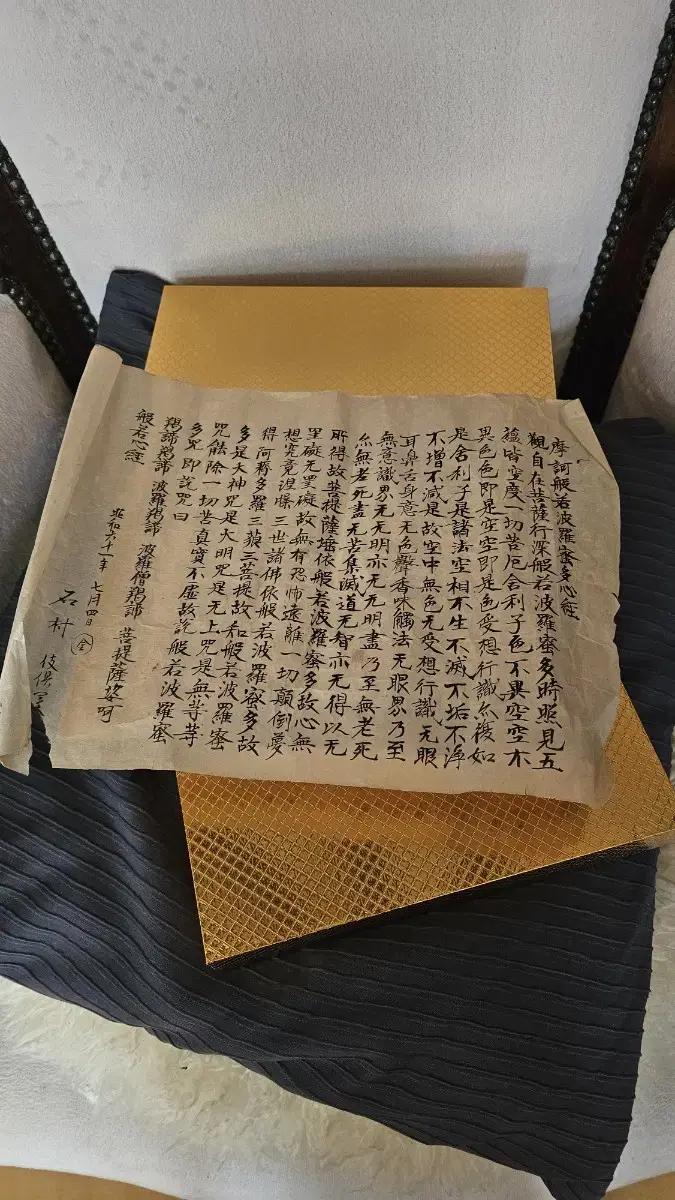 摩訶般若波羅蜜多心経
觀自在菩薩行深般若波羅蜜多時照見五
蘊皆空度一切苦厄舍利子色不異空空不
異色色即是空空即是色受想行識亦復如
是舍利子是諸法空相不生不滅不垢不浄
不增不減是故空中無色无受想行識无眼
耳鼻舌身意无色聲香味觸法无眼界乃至
無意識界无无明亦无无明盡乃至無老死
亦無老死盡无苦集滅道无智亦无得以无
所得故菩提薩埵依般若波羅蜜多故心無
罣礙无罣礙故無有恐怖遠離一切顛倒夢
想究竟涅槃三世諸佛依般若波羅蜜多故
得阿耨多羅三藐三菩提故知般若波羅蜜
多是大神咒是大明咒是无上咒是無等等
咒能除一切苦真實不虛故説般若波羅蜜
多咒即説咒曰
羯諦羯諦 波羅羯諦 波羅僧羯諦 菩提薩婆訶
般若心経
昭和六十一年 七月四日 金
石村